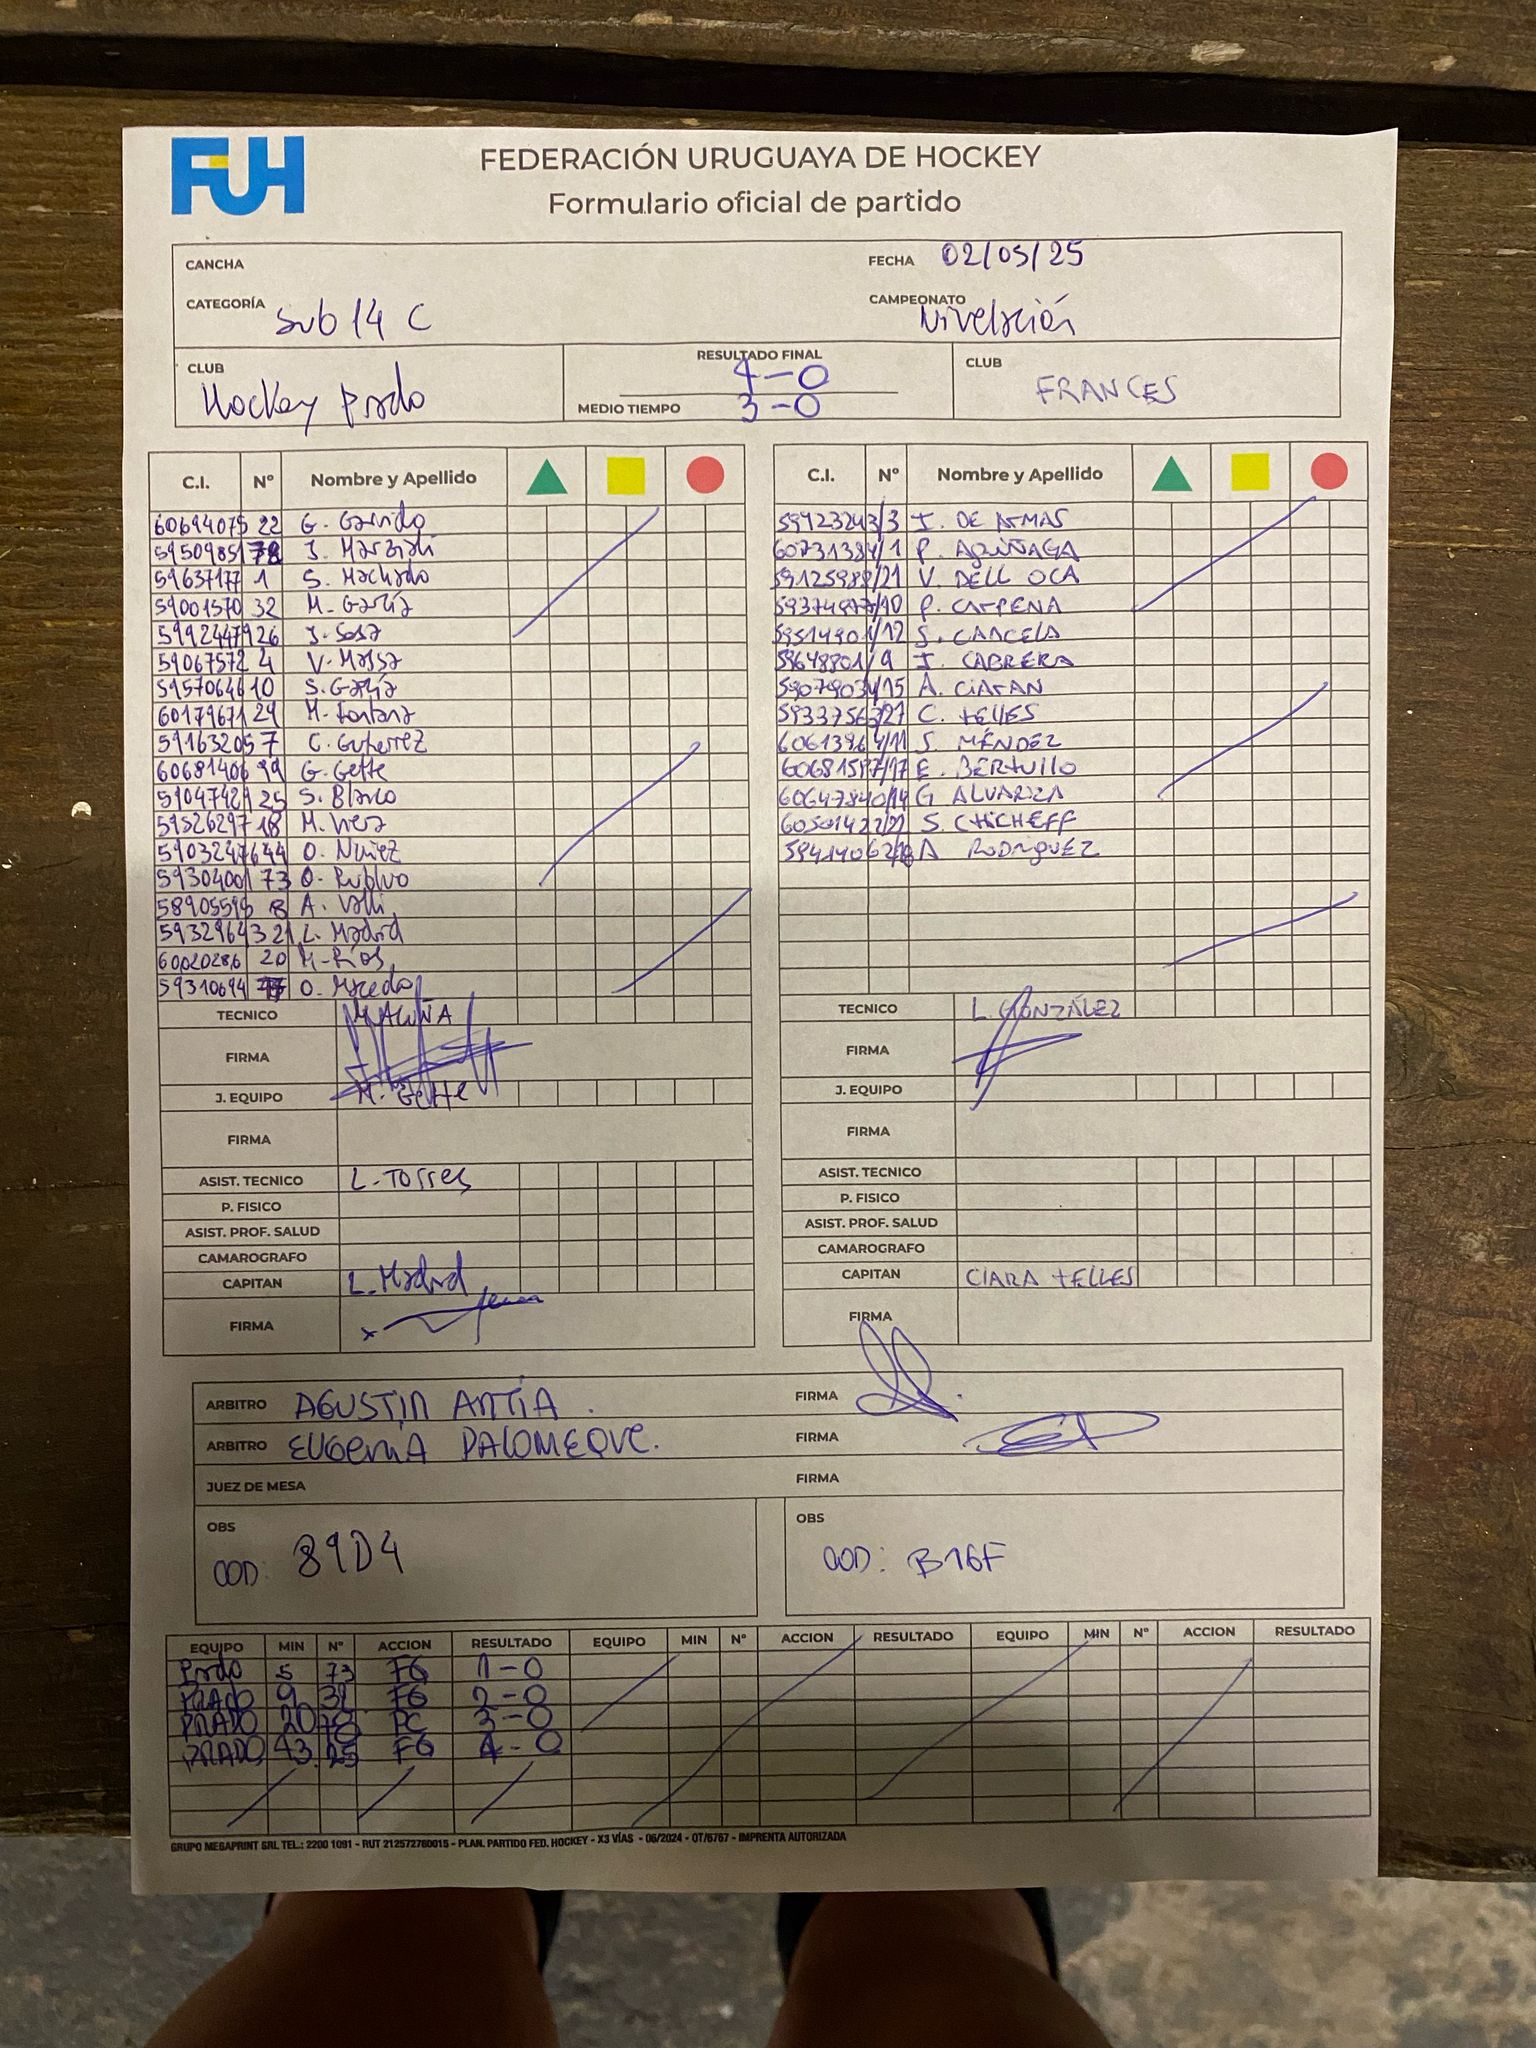 FUH
FEDERACIÓN URUGUAYA DE HOCKEY
Formulario oficial de partido
CANCHA
FECHA 02/05/25
CATEGORÍA Sub 14 C
CAMPEONATO Nivelación
CLUB Hockey Prado
RESULTADO FINAL 4-0
MEDIO TIEMPO 3-0
CLUB FRANCES
C.I. Nº Nombre y Apellido
60694075 22 G. Garrido
5950985 J.
59637177 1 S. Machado
59001570 32 M. García
59924479 26 J. Sosa
59067572 4 V. Massa
59570646 10 S. García
60179671 29 M. Fontana
59163205 7 C. Gutierrez
60681406 99 G. Gette
59047429 25 S. Blanco
59526297 18 M. Viera
59032476 44 O. Nuñez
59304001 73 O.
58905595 8 A. Valli
59329643 21 L. Madrid
60020286 20 M. Ríos
59310694 O. Macedo
TECNICO M. ACUÑA
FIRMA
J. EQUIPO M. Gette
FIRMA
ASIST. TECNICO L. Torres
P. FISICO
ASIST. PROF. SALUD
CAMAROGRAFO
CAPITAN L. Madrid
FIRMA
C.I. Nº Nombre y Apellido
59423243/3 J. DE ARMAS
60731384/1 P. AQUÑAGA
59125988/21 V. DELL OCA
59374977/90 P. CARPENA
59514901/12 S. CANCELA
59648801/9 J. CABRERA
59079034/15 A. CIARAN
59337563/27 C. TELLES
6061396 4/11 S. MÉNDEZ
60681597/17 E. BERTULLO
60647840/14 G ALVARIZA
60501422/22 S. CHICHEFF
59419062 A RODRIGUEZ
TECNICO L. GONZÁLEZ
FIRMA
J. EQUIPO
FIRMA
ASIST. TECNICO
P. FISICO
ASIST. PROF. SALUD
CAMAROGRAFO
CAPITAN CIARA TELLES
FIRMA
ARBITRO AGUSTIN ANTÍA. FIRMA
ARBITRO EUGENIA PALOMEQUE. FIRMA
JUEZ DE MESA FIRMA
OBS
COD: 89D4
OBS
COD: B16F
EQUIPO MIN Nº ACCION RESULTADO EQUIPO MIN Nº ACCION RESULTADO EQUIPO MIN Nº ACCION RESULTADO
Prado 5 73 FG 1-0
PRADO 9 32 FG 2-0
PRADO 20 PC 3-0
PRADO 43 25 FG 4-0
GRUPO MEGAPRINT SRL TEL.: 2200 1091 - RUT 212572760015 - PLAN. PARTIDO FED. HOCKEY - X3 VÍAS - 06/2024 - OT/6767 - IMPRENTA AUTORIZADA